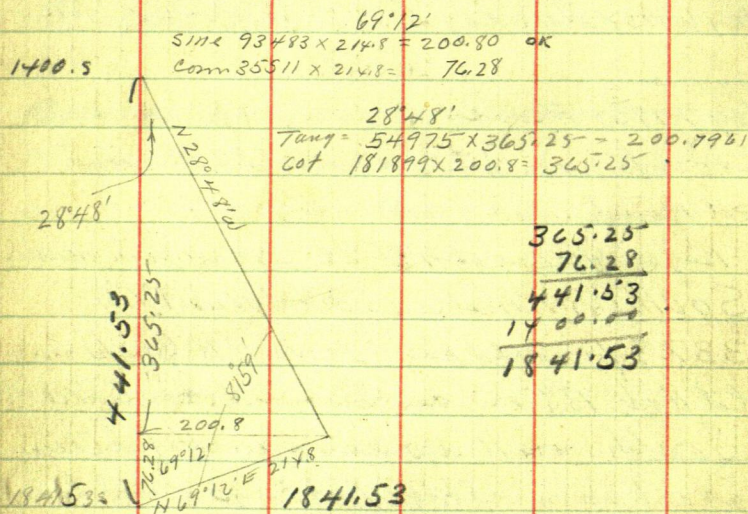 69°12'
sine 93483 x 214.8 = 200.80 OK
1400.S
Cosin 35511 x 214.8 = 76.28
28°48'
Tang = 54975 x 365.25 - 200.7961
Cot 181899 x 200.8 = 365.25
N 28°48' W
28°48'
365.25
76.28
441.53
1400.00
1841.53
441.53
365.25
8159'
200.8
76.28
69°12'
N 69°12' E 214.8
1841.53s
1841.53